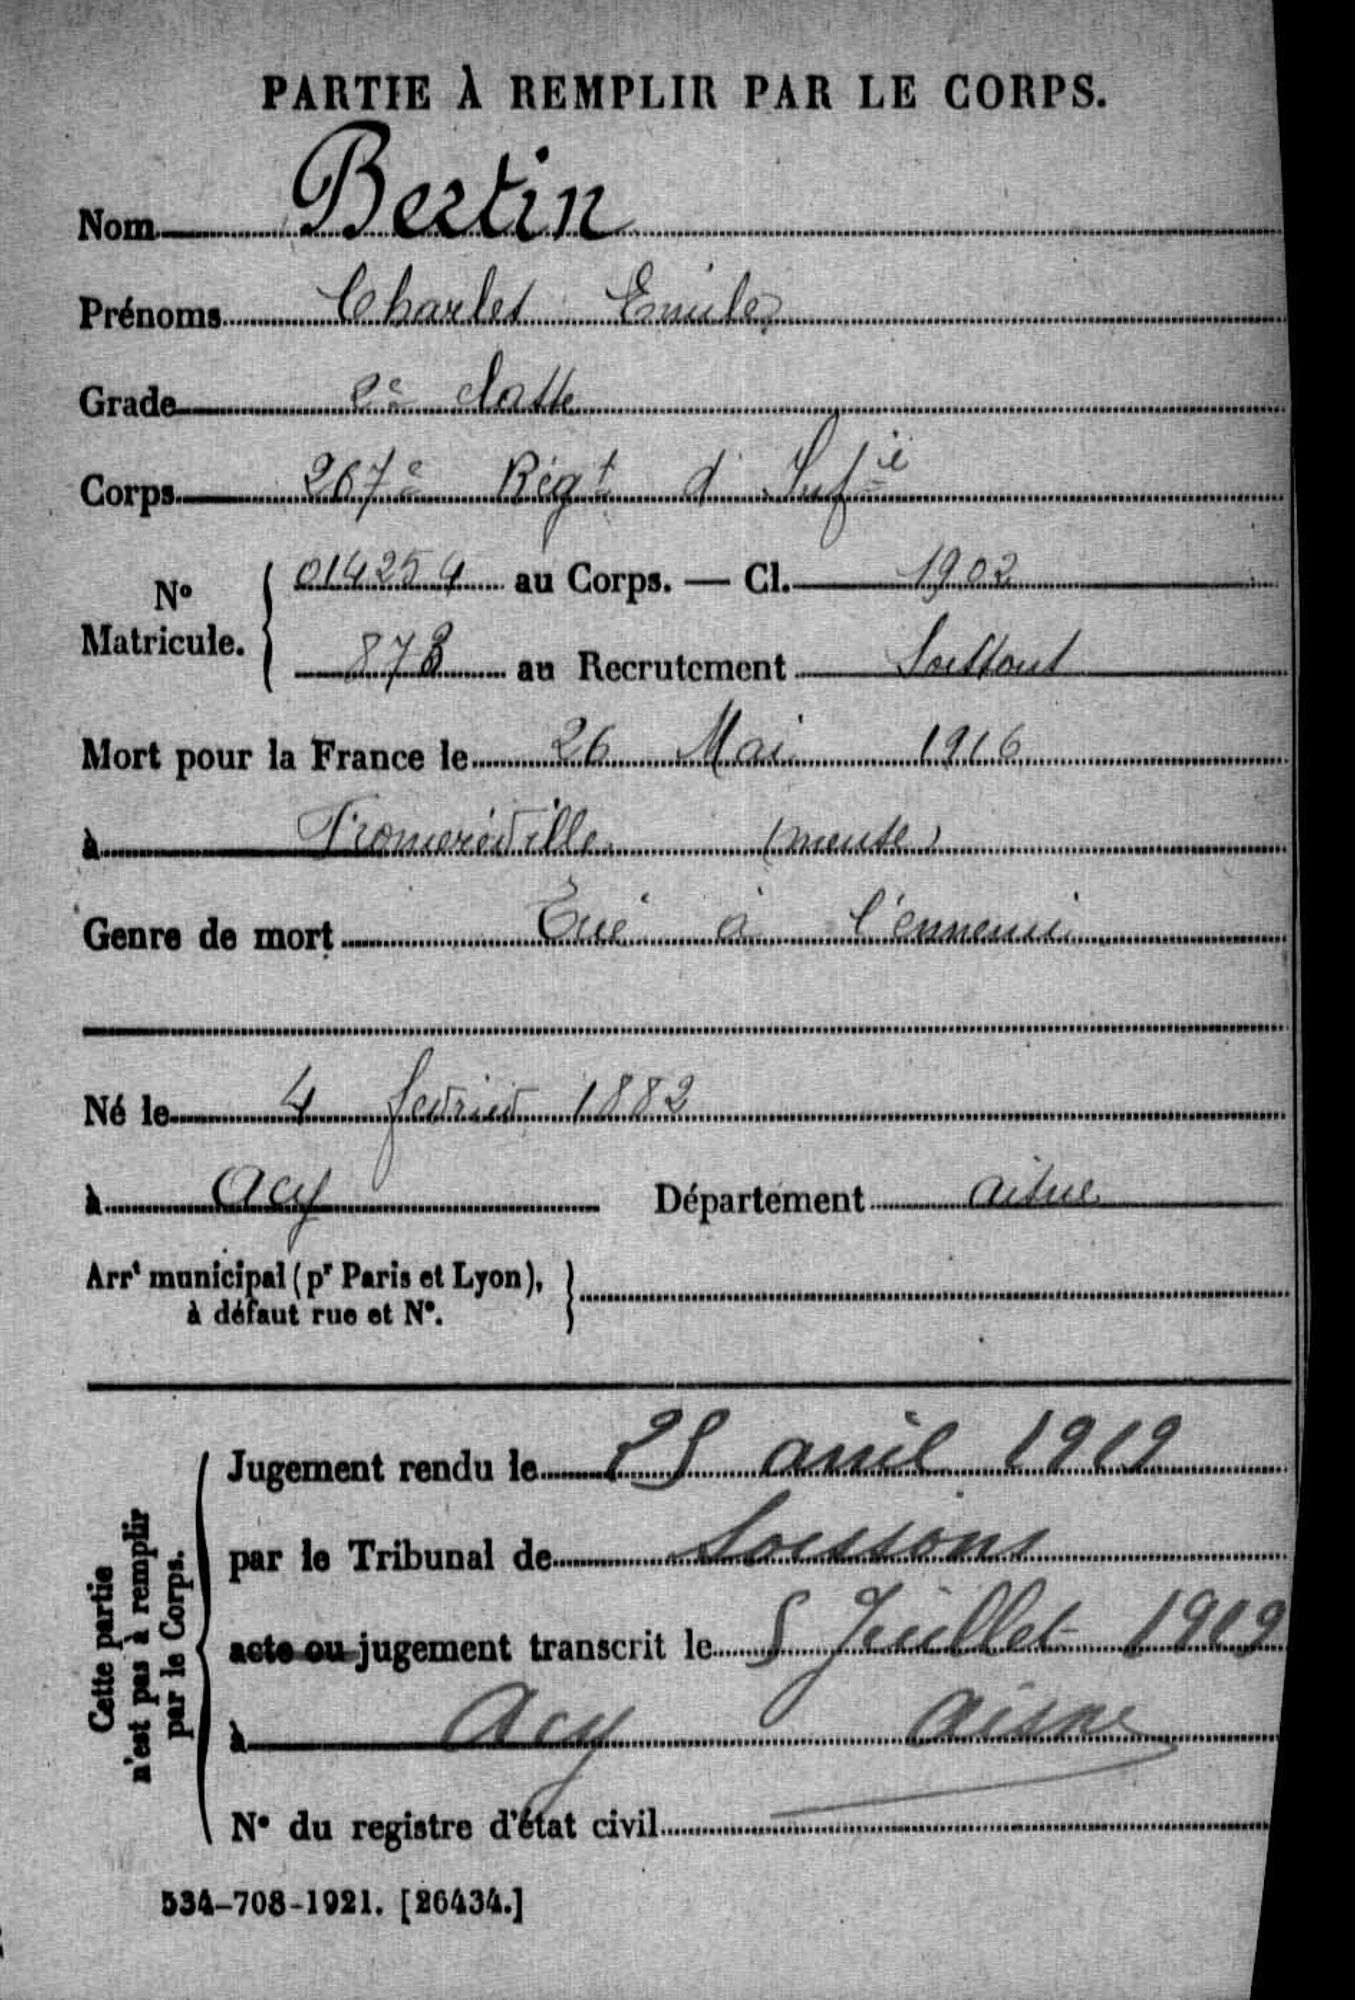 PARTIE À REMPLIR PAR LE CORPS.
Nom Bertin
Prénoms Charles Emile
Grade 2e classe
Corps 267e Régt d'Infie
No Matricule. 014254 au Corps. — Cl. 1902
873 au Recrutement Soissons
Mort pour la France le 26 Mai 1916
à Fromeréville (meuse)
Genre de mort Tué à l'ennemi
Né le 4 fevrier 1882
à Acy Département Aisne
Arrt municipal (pr Paris et Lyon),
à défaut rue et No.
Cette partie
n'est pas à remplir
par le Corps.
Jugement rendu le 25 avril 1919
par le Tribunal de Soissons
acte ou jugement transcrit le 5 Juillet 1919
à Acy Aisne
No du registre d'état civil
534-708-1921. [26434.]